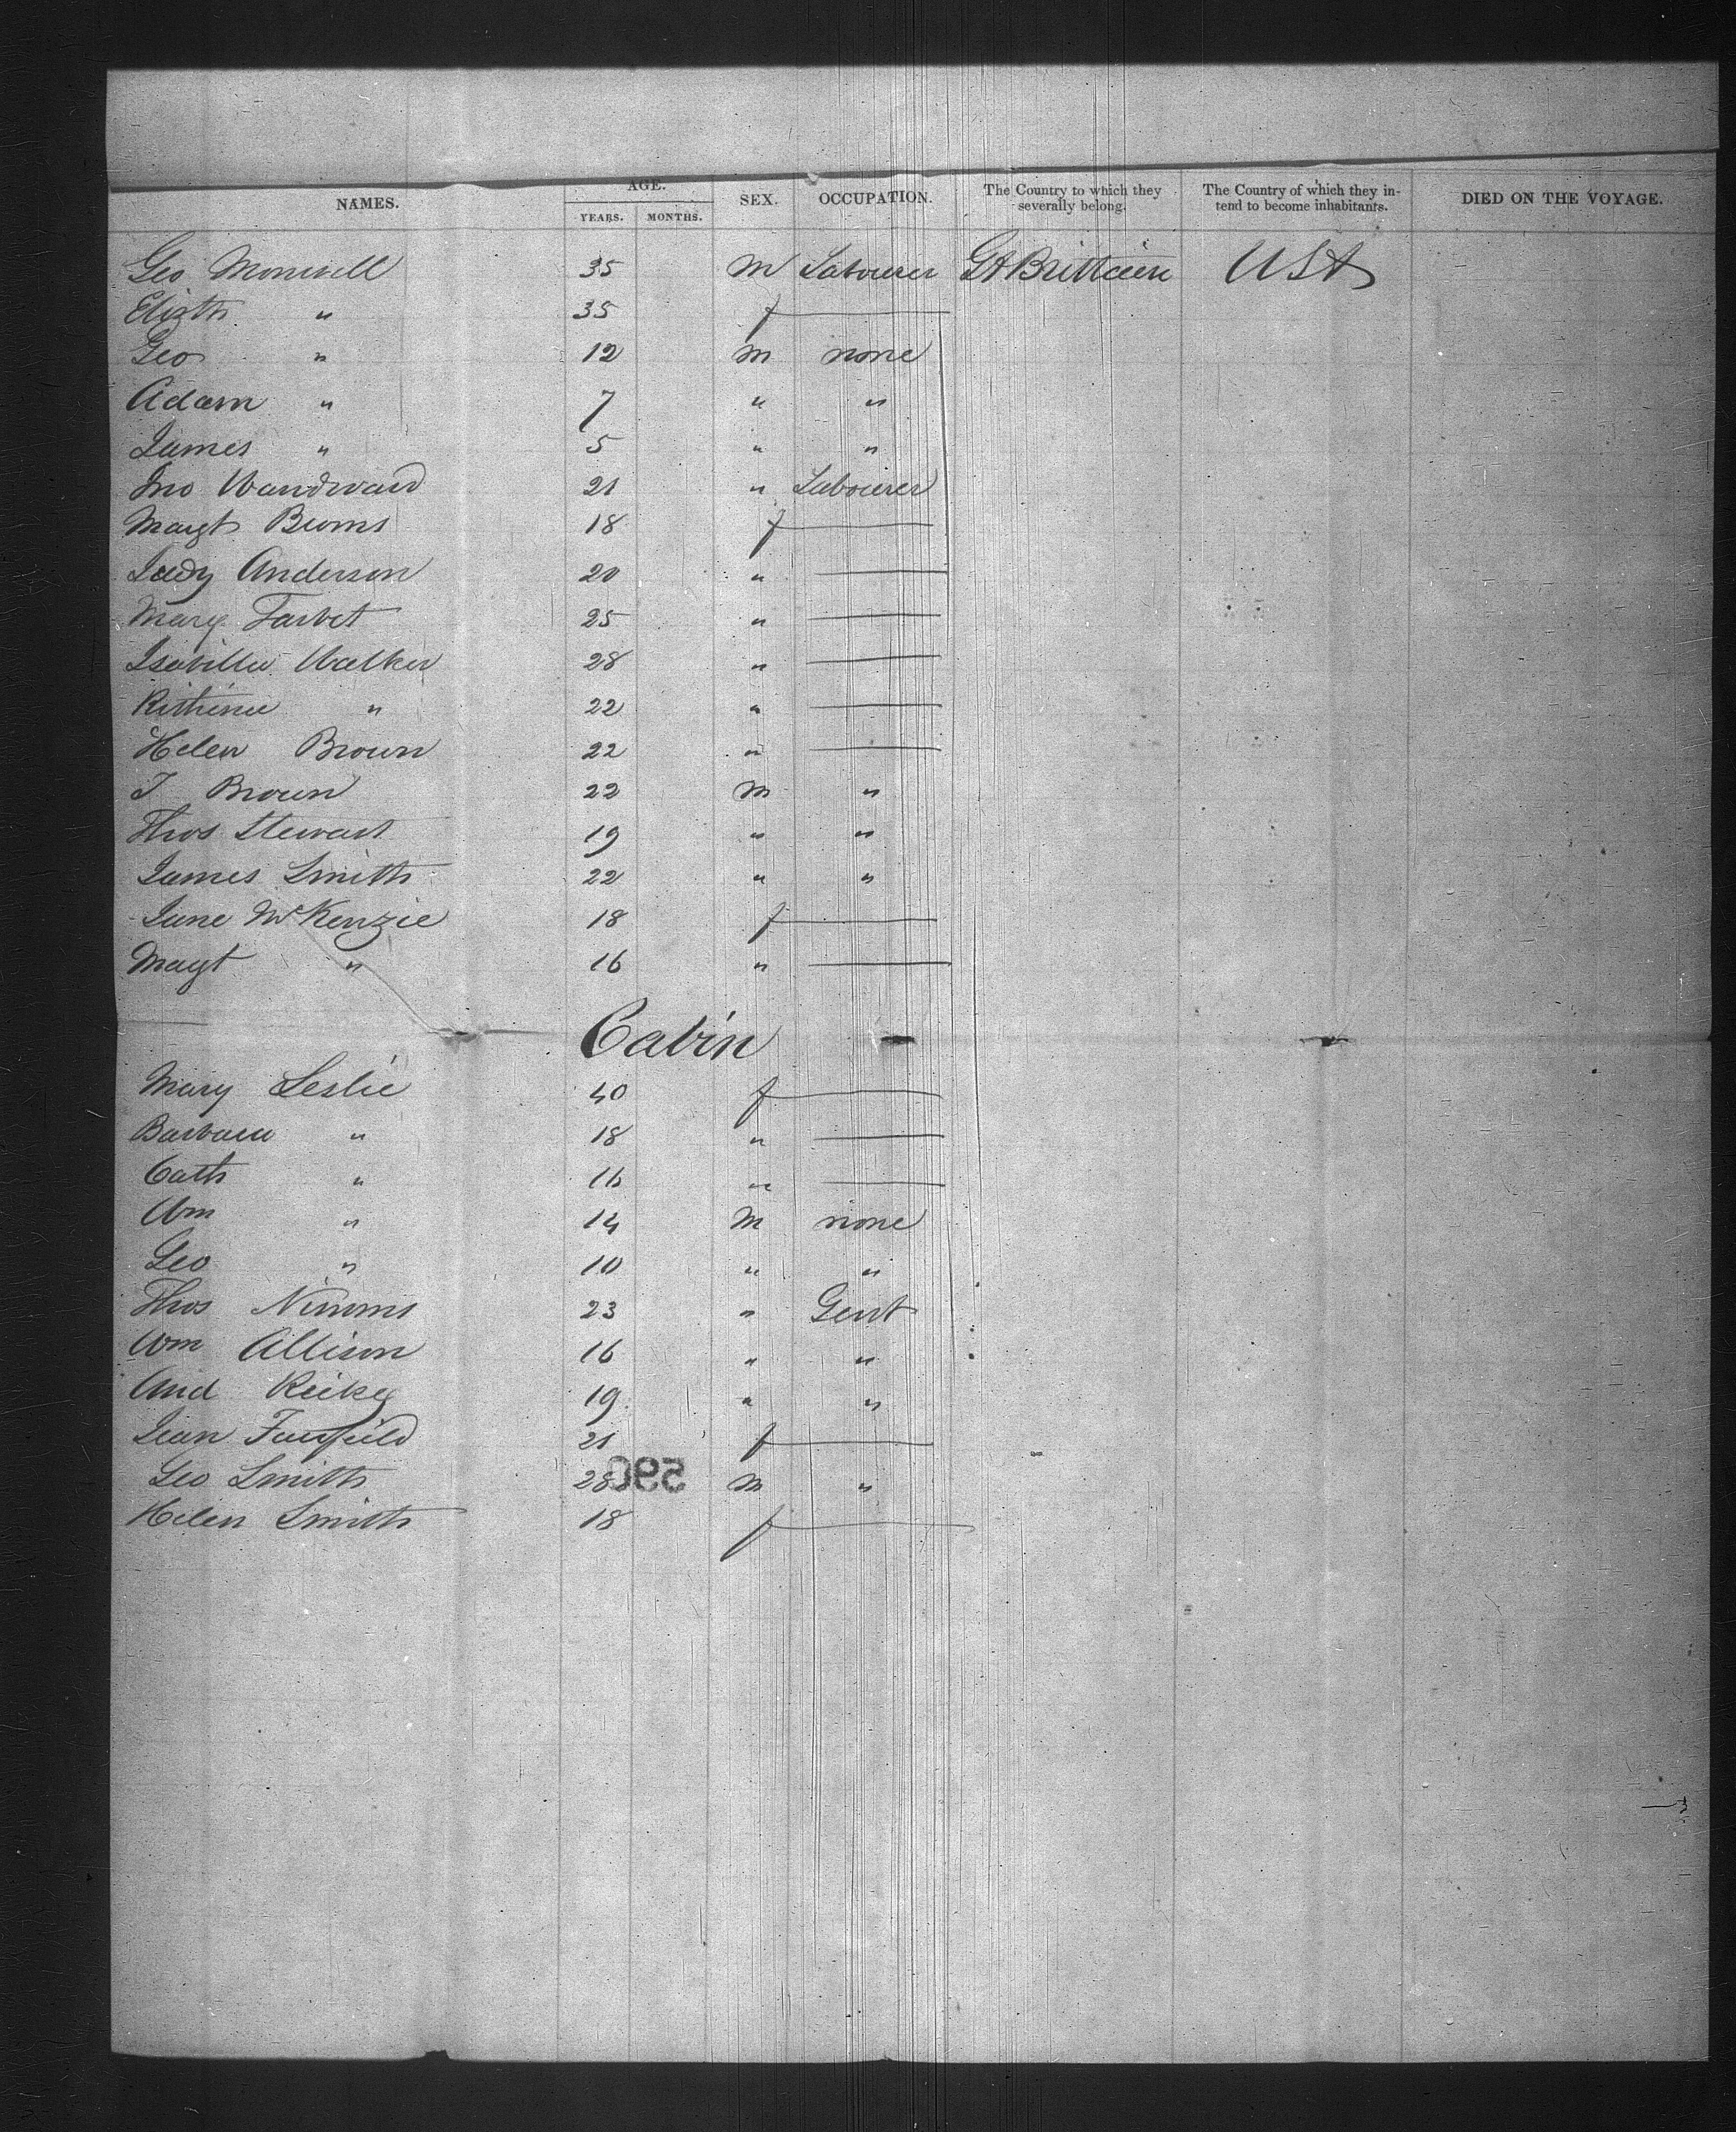 NAMES. AGE. SEX. OCCUPATION. The Country to which they severally belong. The Country of which they in-tend to become inhabitants. DIED ON THE VOYAGE.
YEARS. MONTHS.
Geo 35 M Labourer Gt Brittain USA
Elizth " 35 f
Geo " 12 M none
Adam " 7 " "
James " 5 " "
Jno 21 " Labourer
Margt Burns 18 f
Anderson 20 "
Mary Tarbet 25 "
Isabella Walker 28 "
" 22 "
Helen Brown 22 "
J Brown 22 M "
Thos Stewart 19 " "
James Smith 22 " "
Jane McKenzie 18 f
Magt " 16 "
Cabin
Mary Leslie 40 f
Barbara " 18 "
Cath " 16 "
Wm " 14 M none
Geo " 10 " "
Thos Nimms 23 " Gent
Wm Allison 16 " "
And 19 " "
Jean Fairfield 21 f
Geo Smith 28 M "
590
Helen Smith 18 f